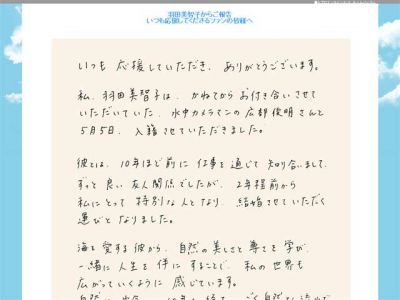 羽田美智子からご報告
いつも応援してくださるファンの皆様へ
いつも 応援していただき、ありがとうございます。
私、羽田美智子は、かねてから お付き合いさせて
いただいていた、水中カメラマンの 広部俊明さんと
5月5日、入籍させていただきました。
彼とは、10年ほど前に 仕事を通じて 知り合いまして、
ずっと 良い 友人関係でしたが、2年程前から
私にとって 特別な人となり、結婚させていただく
運びと なりました。
海を 愛する 彼から、自然の 美しさと 尊さを 学び、
一緒に 人生を 伴に することで、私の 世界も
広がっていくように 感じています。